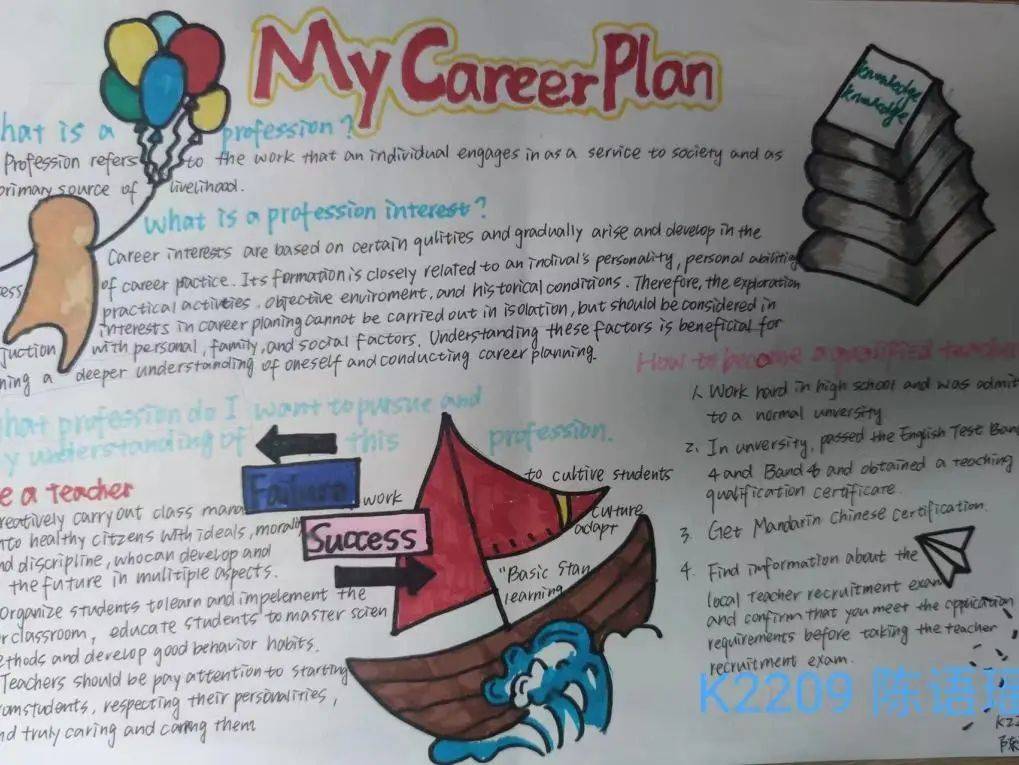 My Career Plan
hat is a profession?
Profession refers to the work that an individual engages in as a service to society and as
primary source of livelihood.
what is a profession interest?
Career interests are based on certain qulities and gradually arise and develop in the
of career practice. Its formation is closely related to an indival's personality, personal abilities
practical activties, objective enviroment, and historical conditions. Therefore, the exploration
interests in career planing cannot be carried out in isolation, but should be considered in
ess
juction with personal, family, and social factors. Understanding these factors is beneficial for
ning a deeper understanding of oneself and conducting career planning.
knowledge
knowledge
hat profession do I want to pursue and
y understanding of this profession.
e a teacher
reatively carry out class mana work to cultive students
nto healthy citzens with ideals, morali culture
nd discripline, who can develop and adapt
the future in mulitiple aspects.
Organize students to learn and impelement the "Basic Stan
r classroom, educate students to master scien learning
ethods and develop good behavior habits.
Teachers should be pay attention to starting
rom students, respecting their personalities,
nd truly caring and caring them
Failure
Success
How to become a qualified teacher
1. Work hard in high school and was admit
to a normal unversity
2. In unversity, passed the English Test Band
4 and Band 6 and obtained a teaching
qualification certificate.
3. Get Mandarin Chinese certification.
4. Find information about the
local teacher recruitment exam
and confirm that you meet the application
requirements before taking the teacher
recruitment exam.
K2209 陈语瑶
K22
陈